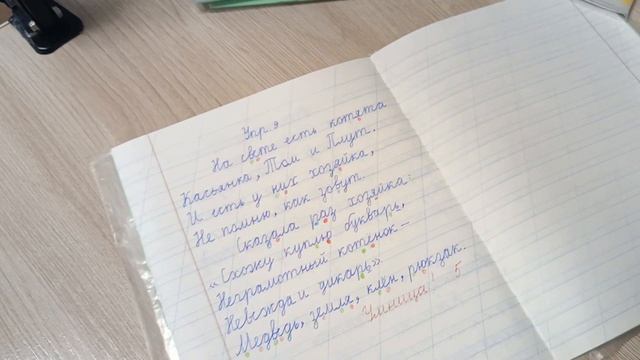 Упр. 9
На свете есть котята
Касьянка, Том и Плут.
И есть у них хозяйка,
Не помню, как зовут.
Сказала раз хозяйка:
«Схожу куплю букварь,
Неграмотный котенок –
Невежда и дикарь».
Медведь, земля, клён, рюкзак.
Умница! 5